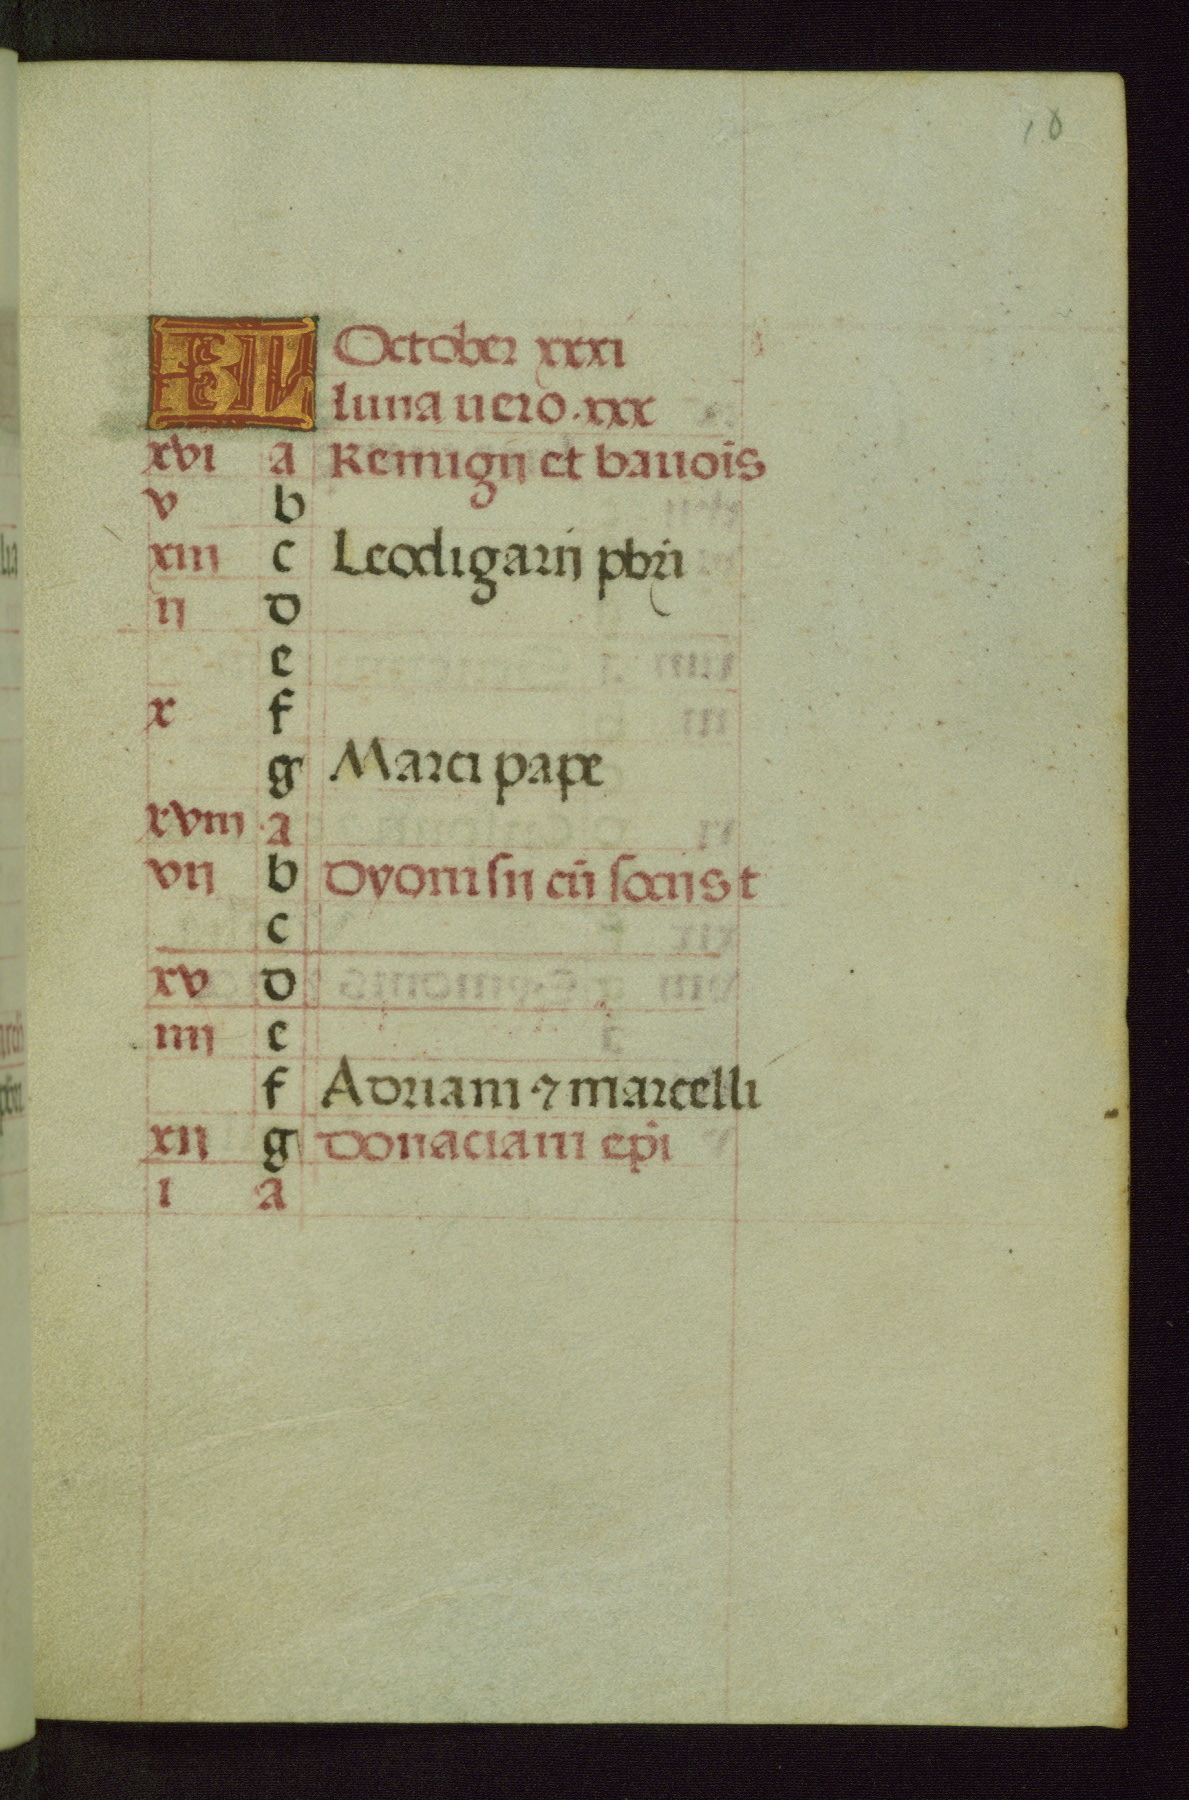 18
KL October xxxi
luna uero. xxx
xvi a Remigii et bauoīs
v b
xiii c Leodigarii pbri
ii d
e
x f
g Marci pape
xviii a
vii b Dyonisii cū sociis t
c
xv d
iiii e
f Adriani ⁊ marcelli
xii g Donaciani epi
i a